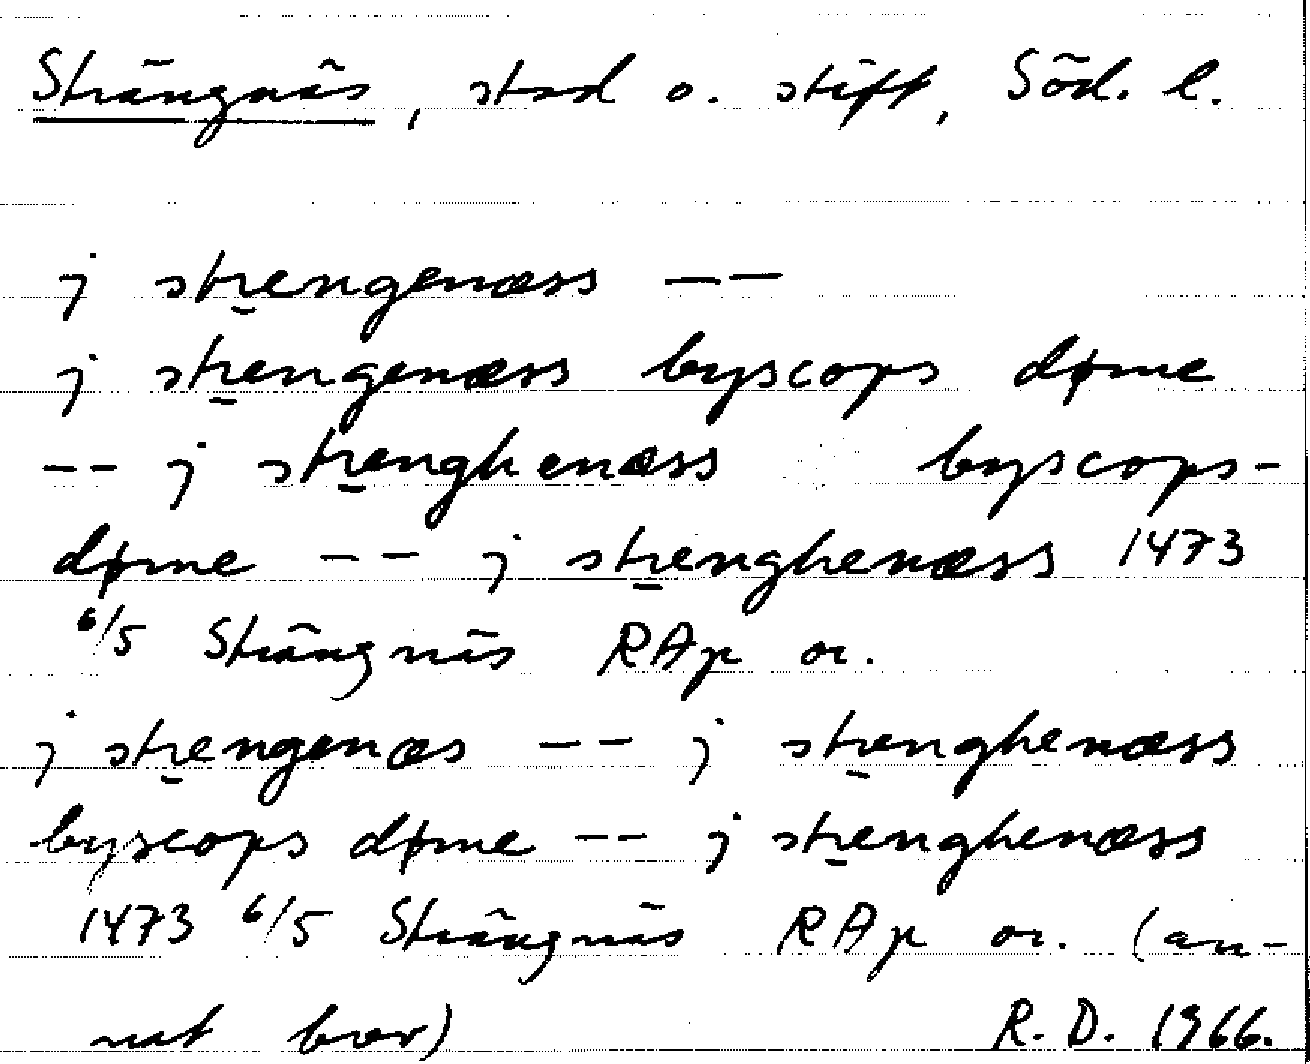 Strängnäs, stad o. stift, Söd. l.
j strengenæss --
j strengenæss byscops døme
-- j strenghenæss byscops-
døme -- j strenghenæss 1473
6/5 Strängnäs RAp or.
j strengenæs -- j strenghenæss
byscops døme -- j strenghenæss
1473 6/5 Strängnäs RAp or. (an-
nat brev) R. D. 1966.